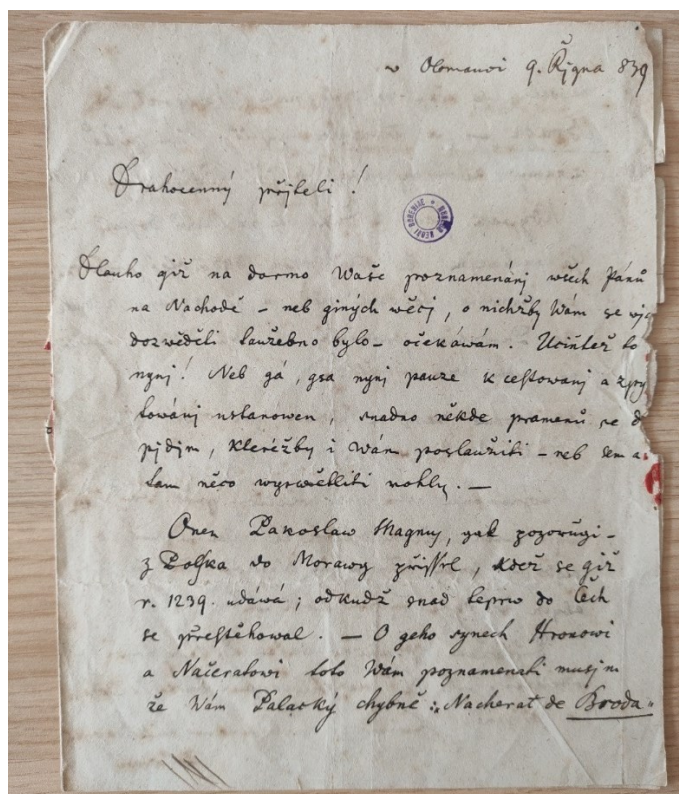 w Olomauci 9. Řjgna 839
Drahocenný přjteli!
Dlauho giž na darmo Waše poznamenánj wšech Pánů
na Nachodě – neb giných wěcj, o nichžby Wám se wjc
dozwěděti taužebno bylo – očekáwám. Učiňtež to
nynj! Neb gá, gsa nynj pauze k cestowanj a zpy
towánj ustanowen, snadno někde pramenů se d
pjdjm, kteréžby i Wám poslaužiti – neb sem a
tam něco wyswětliti mohly. —
Onen Pakoslaw Magnus, gak pozorugi –
z Polska do Morawy přišel, kdež se giž
r. 1239. udáwá; odkudž snad teprw do Čech
se přestěhowal. — O geho synech Hronowi
a Načeratowi toto Wám poznamenati musjm
že Wám Palacký chybně: „Nacherat de Broda"